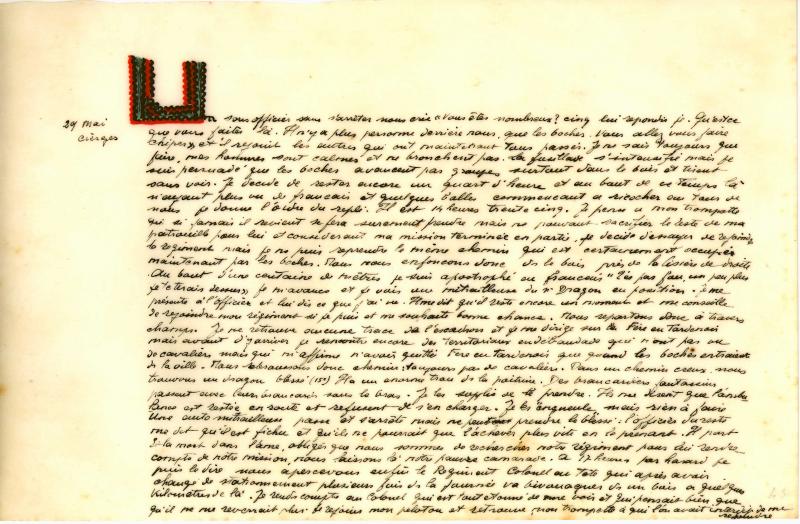 29 mai
Cierges
Un sous officier sans s'arrêter nous crie "Vous êtes nombreux? cinq lui repondis je. Qu'est ce
que vous faites là. Il n'y a plus personne derrière nous, que les boches. Vous allez vous faire
chiper" et il rejoint les autres qui ont maintenant tous passés. Je ne sais toujours que
faire, mes hommes sont calmes et ne bronchent pas. La fusillade s'intensifie mais je
suis persuadé que les boches avancent par groupes surtout dans le bois et tirent
sans voir. Je decide de rester encore un quart d'heure et au bout de ce temps là
n'ayant plus vu de francais et quelques balles commencant a ricocher autour de
nous je donne l'ordre du repli. Il est 14 heures trente cinq. Je pense a mon trompette
qui si jamais il revient se fera surement prendre mais ne pouvant sacrifier le reste de ma
patrouille pour lui et considerant ma mission terminée en partie, je decide d'essayer de rejoindre
le regiment mais je ne puis reprendre le même chemin qui est certainement occupé
maintenant par les boches. Nous nous enfoncons donc ds le bois près de la lisière de droite
Au bout d'une centaine de mètres je suis apostrophé en francais "T'es pas fou, un peu plus
je t'étais dessus", je m'avance et je vois une mitrailleuse du Dragon en position. Je me
présente à l'officier et lui dis ce que j'ai vu. Il me dit qu'il reste encore un moment et me conseille
de rejoindre mon régiment si je puis et me souhaite bonne chance. Nous repartons donc à travers
champs. Je ne retrouve aucune trace de l'escadron et je me dirige sur la Fère en tardenois
mais avant d'y arriver je rencontre encore des territoriaux en débandade qui n'ont pas vu
de cavaliers mais qui m'affirme n'avoir quitté Fère en tardenois que quand les boches entraient
ds la ville. Nous rebroussons donc chemin; toujours pas de cavaliers. Dans un chemin creux nous
trouvons un dragon blessé (15e) Il a un enorme trou ds la poitrine. Des brancardiers fantassins
passent avec leurs brancards sous le bras. Je les supplie de le prendre. Ils me disent que l'ambu
lance est restée en route et refusent de s'en charger. Je les engueule mais rien à faire
Une auto mitrailleuse passe et s'arrete mais ne peut prendre le blessé. L'officier du reste
me dit qu'il est fichu et qu'ils ne pourraient que l'achever plus vite en le prenant. Il part
Et la mort dans l'ame, obligés que nous sommes de rechercher notre régiment pour lui rendre
compte de notre mission, nous laissons là notre pauvre camarade. A 17 heures par hasard je
puis le dire nous apercevons enfin le Regiment Colonel en tete qui après avoir
changé de stationnement plusieurs fois ds la journée va bivouaquer ds un bois a quelques
kilomètres de là. Je rends compte au Colonel qui est tout etonné de me voir et qui pensait bien que
qu'il ne me reverrait plus. Je rejoins mon peloton et retrouve mon trompette à qui l'on avait interdit de me
rejoindre